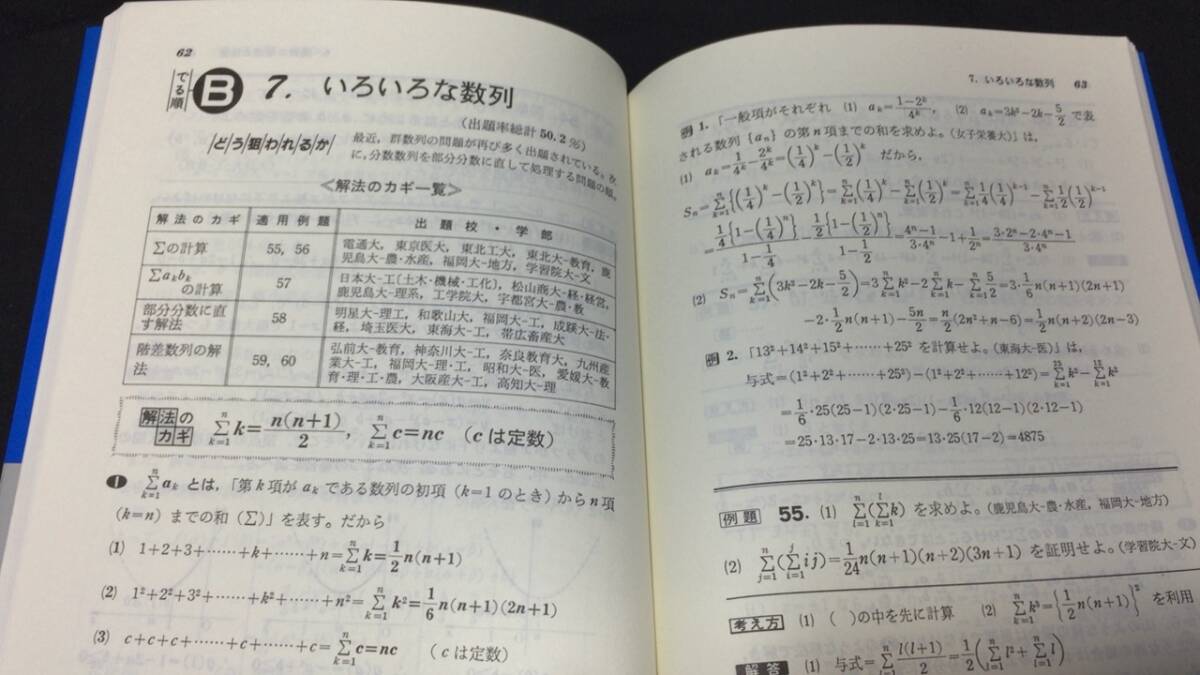 62
でる順 B 7. いろいろな数列
(出題率総計50.2%)
どう狙われるか 最近，群数列の問題が再び多く出題されている。次
に，分数数列を部分分数に直して処理する問題の順。
<解法のカギ一覧>
解法のカギ 適用例題 出題校・学部
Σの計算 55, 56 電通大，東京医大，東北工大，東北大-教育，鹿
児島大-農・水産，福岡大-地方，学習院大-文
Σaₖbₖ の計算 57 日本大-工〔土木・機械・工化〕，松山商大-経・経営，
鹿児島大-理系，工学院大，宇都宮大-農・教
部分分数に直す解法 58 明星大-理工，和歌山大，福岡大-工，成蹊大-法・
経，埼玉医大，東海大-工，帯広畜産大
階差数列の解法 59, 60 弘前大-教育，神奈川大-工，奈良教育大，九州産
業大-工，福岡大-理・工，昭和大-医，愛媛大-教
育・理・工・農，大阪産大-工，高知大-理
解法のカギ \sum_{k=1}^{n}k=\frac{n(n+1)}{2}, \sum_{k=1}^{n}c=nc (cは定数)
❶ \sum_{k=1}^{n}a_k とは，「第k項が a_k である数列の初項 (k=1のとき) から n項
(k=n) までの和 (Σ)」を表す。だから
(1) 1+2+3+……+k+……+n=\sum_{k=1}^{n}k=\frac{1}{2}n(n+1)
(2) 1²+2²+3²+……+k²+……+n²=\sum_{k=1}^{n}k²=\frac{1}{6}n(n+1)(2n+1)
(3) c+c+c+……+c+……+c=\sum_{k=1}^{n}c=nc (cは定数)
7. いろいろな数列 63
例 1. 「一般項がそれぞれ (1) a_k=\frac{1-2^k}{4^k}, (2) a_k=3k²-2k-\frac{5}{2} で表
される数列 {a_n} の第n項までの和を求めよ。(女子栄養大)」は，
(1) a_k=\frac{1}{4^k}-\frac{2^k}{4^k}=(\frac{1}{4})^k-(\frac{1}{2})^k だから．
S_n=\sum_{k=1}^{n}{(\frac{1}{4})^k-(\frac{1}{2})^k}=\sum_{k=1}^{n}(\frac{1}{4})^k-\sum_{k=1}^{n}(\frac{1}{2})^k=\sum_{k=1}^{n}\frac{1}{4}(\frac{1}{4})^{k-1}-\sum_{k=1}^{n}\frac{1}{2}(\frac{1}{2})^{k-1}
=\frac{\frac{1}{4}{1-(\frac{1}{4})^n}}{1-\frac{1}{4}}-\frac{\frac{1}{2}{1-(\frac{1}{2})^n}}{1-\frac{1}{2}}=\frac{4^n-1}{3·4^n}-1+\frac{1}{2^n}=\frac{3·2^n-2·4^n-1}{3·4^n}
(2) S_n=\sum_{k=1}^{n}(3k²-2k-\frac{5}{2})=3\sum_{k=1}^{n}k²-2\sum_{k=1}^{n}k-\sum_{k=1}^{n}\frac{5}{2}=3·\frac{1}{6}n(n+1)(2n+1)
-2·\frac{1}{2}n(n+1)-\frac{5n}{2}=\frac{n}{2}(2n²+n-6)=\frac{1}{2}n(n+2)(2n-3)
例 2. 「13²+14²+15²+……+25² を計算せよ。(東海大-医)」は，
与式=(1²+2²+……+25²)-(1²+2²+……+12²)=\sum_{k=1}^{25}k²-\sum_{k=1}^{12}k²
=\frac{1}{6}·25(25-1)(2·25-1)-\frac{1}{6}·12(12-1)(2·12-1)
=25·13·17-2·13·25=13·25(17-2)=4875
例題 55. (1) \sum_{l=1}^{n}(\sum_{k=1}^{l}k) を求めよ。(鹿児島大-農・水産，福岡大-地方)
(2) \sum_{j=1}^{n}(\sum_{i=1}^{j}ij)=\frac{1}{24}n(n+1)(n+2)(3n+1) を証明せよ。(学習院大-文)
考え方 (1) ( )の中を先に計算 (2) \sum_{k=1}^{n}k³={\frac{1}{2}n(n+1)}² を利用
解答 (1) 与式=\sum_{l=1}^{n}\frac{l(l+1)}{2}=\frac{1}{2}(\sum_{l=1}^{n}l²+\sum_{l=1}^{n}l)